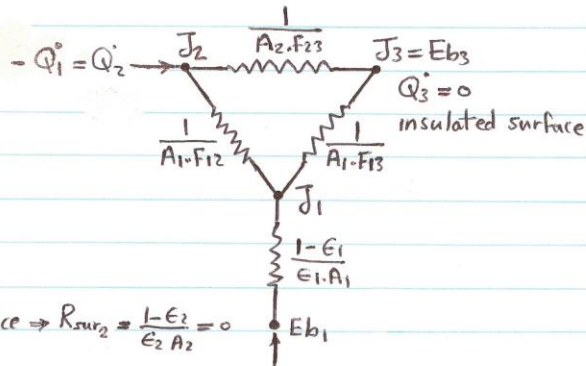 1
A2.F23
- Q̇1 = Q̇2
J2
J3 = Eb3
Q̇3 = 0
insulated surface
1
A1.F12
1
A1.F13
J1
1-ϵ1
ϵ1.A1
ce ⇒ Rsur2 = 1-ϵ2 / ϵ2 A2 = 0
Eb1